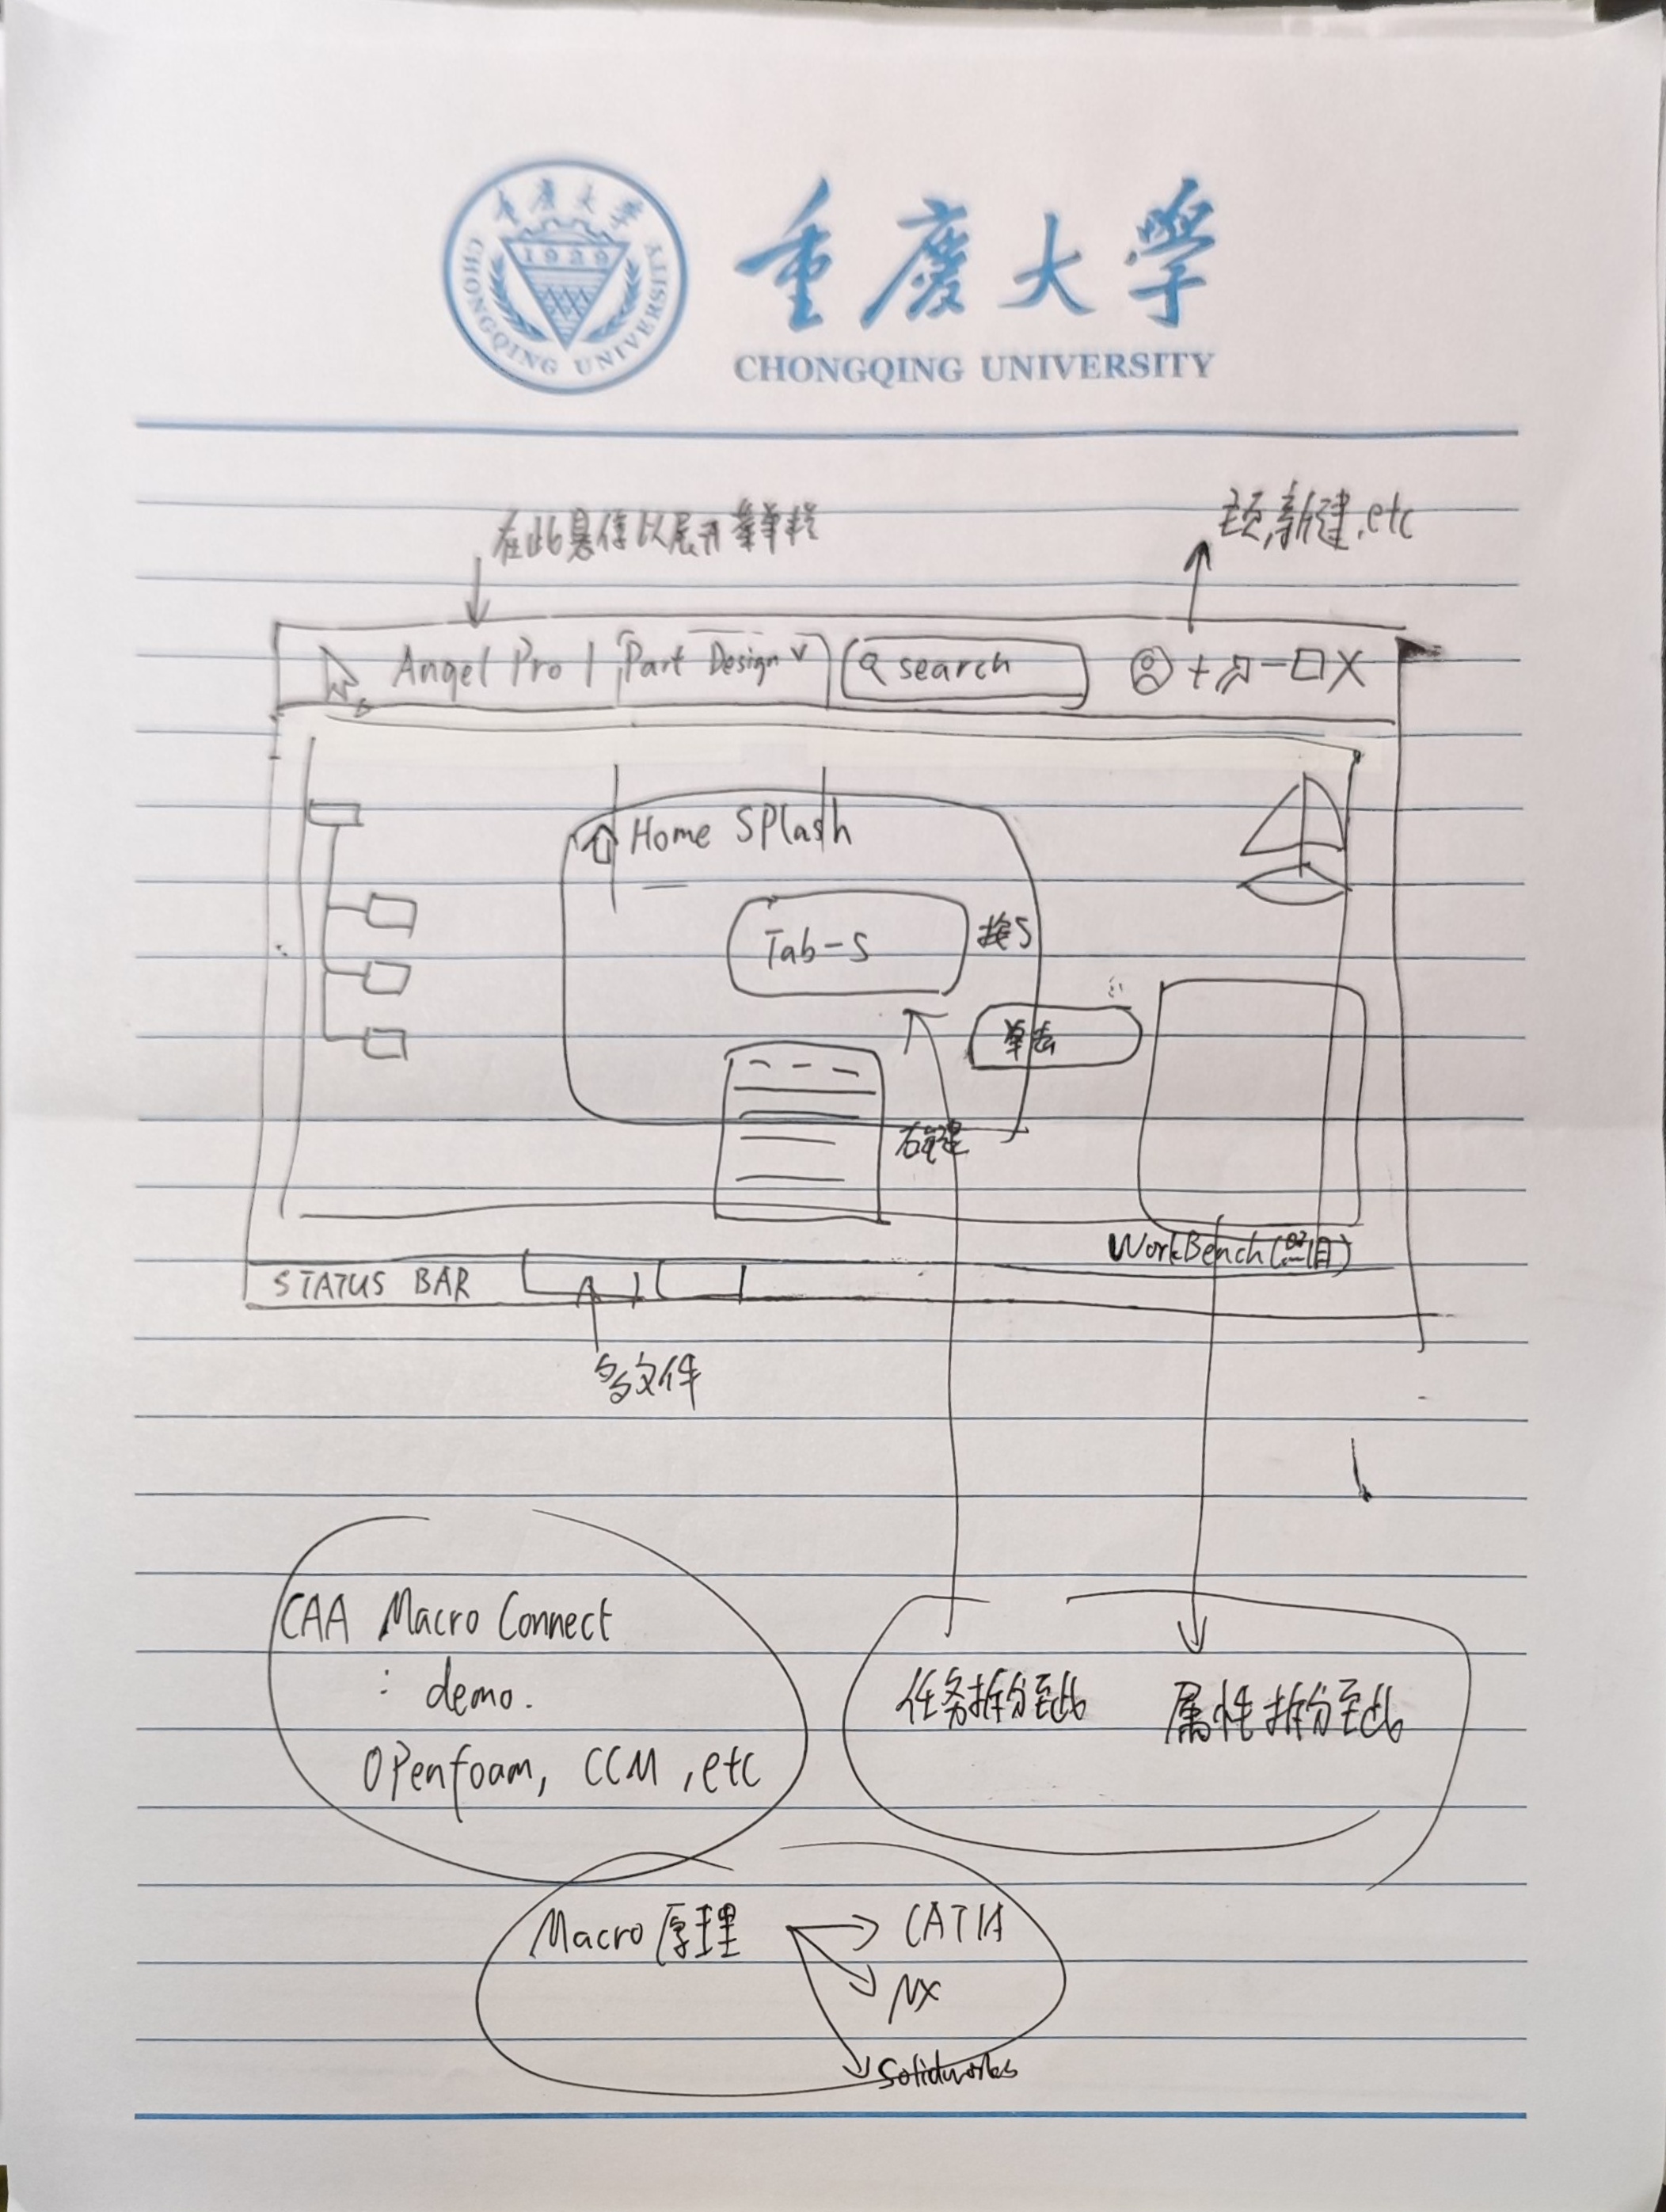 重慶大學
1929
CHONGQING UNIVERSITY
重慶大學
CHONGQING UNIVERSITY
在此悬停以展开菜单栏
主页,新建,etc
Angel Pro | Part Design
search
Home SPlash
Tab-S
按S
单击
右键
WorkBench(
STATUS BAR
多文件
CAA Macro Connect
: demo.
OPenfoam, CCM, etc
任务拆分至此
属性拆分至此
Macro原理
CATIA
NX
Solidworks